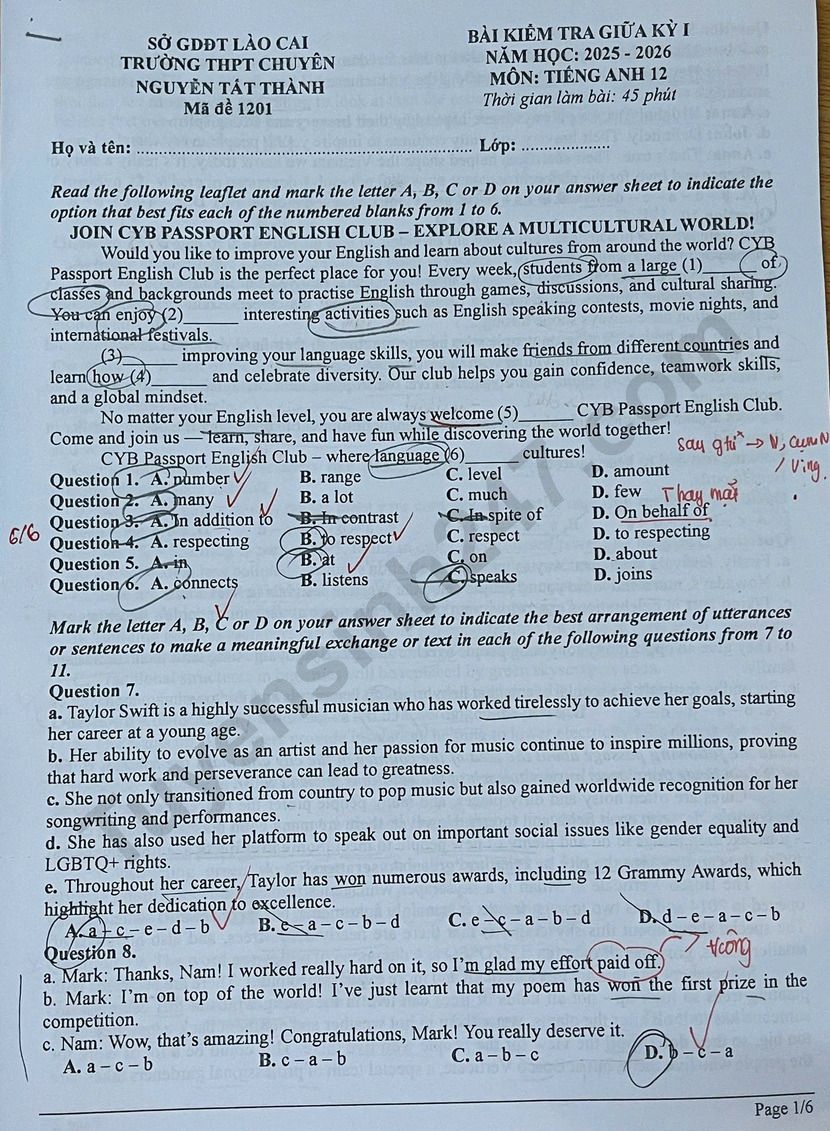 SỞ GDĐT LÀO CAI
TRƯỜNG THPT CHUYÊN
NGUYỄN TẤT THÀNH
Mã đề 1201
BÀI KIỂM TRA GIỮA KỲ I
NĂM HỌC: 2025 - 2026
MÔN: TIẾNG ANH 12
Thời gian làm bài: 45 phút
Họ và tên: ........................................................... Lớp: ...................
Read the following leaflet and mark the letter A, B, C or D on your answer sheet to indicate the
option that best fits each of the numbered blanks from 1 to 6.
JOIN CYB PASSPORT ENGLISH CLUB – EXPLORE A MULTICULTURAL WORLD!
Would you like to improve your English and learn about cultures from around the world? CYB
Passport English Club is the perfect place for you! Every week, students from a large (1)______ of
classes and backgrounds meet to practise English through games, discussions, and cultural sharing.
You can enjoy (2)______ interesting activities such as English speaking contests, movie nights, and
international festivals.
(3)______ improving your language skills, you will make friends from different countries and
learn how (4)______ and celebrate diversity. Our club helps you gain confidence, teamwork skills,
and a global mindset.
No matter your English level, you are always welcome (5)______ CYB Passport English Club.
Come and join us — learn, share, and have fun while discovering the world together!
CYB Passport English Club – where language (6)______ cultures!
say giới từ → N, cụm N
/ Ving.
Question 1. A. number B. range C. level D. amount
Question 2. A. many B. a lot C. much D. few
Thay mặt
Question 3. A. In addition to B. In contrast C. In spite of D. On behalf of
6/6
Question 4. A. respecting B. to respect C. respect D. to respecting
Question 5. A. in B. at C. on D. about
Question 6. A. connects B. listens C. speaks D. joins
Mark the letter A, B, C or D on your answer sheet to indicate the best arrangement of utterances
or sentences to make a meaningful exchange or text in each of the following questions from 7 to
11.
Question 7.
a. Taylor Swift is a highly successful musician who has worked tirelessly to achieve her goals, starting
her career at a young age.
b. Her ability to evolve as an artist and her passion for music continue to inspire millions, proving
that hard work and perseverance can lead to greatness.
c. She not only transitioned from country to pop music but also gained worldwide recognition for her
songwriting and performances.
d. She has also used her platform to speak out on important social issues like gender equality and
LGBTQ+ rights.
e. Throughout her career, Taylor has won numerous awards, including 12 Grammy Awards, which
highlight her dedication to excellence.
A. a – c – e – d – b B. e – a – c – b – d C. e – c – a – b – d D. d – e – a – c – b
Question 8.
a. Mark: Thanks, Nam! I worked really hard on it, so I'm glad my effort paid off.
b. Mark: I'm on top of the world! I've just learnt that my poem has won the first prize in the
competition.
c. Nam: Wow, that's amazing! Congratulations, Mark! You really deserve it.
A. a – c – b B. c – a – b C. a – b – c D. b – c – a
Page 1/6
Tuyensinh247.com